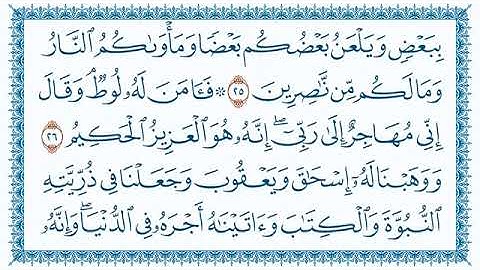 بِبَعْضٍ وَيَلْعَنُ بَعْضُكُم بَعْضًا وَمَأْوَىٰكُمُ النَّارُ
وَمَا لَكُم مِّن نَّٰصِرِينَ ٢٥ ۞ فَـَٔامَنَ لَهُۥ لُوطٌ وَقَالَ
إِنِّى مُهَاجِرٌ إِلَىٰ رَبِّىٓ ۖ إِنَّهُۥ هُوَ الْعَزِيزُ الْحَكِيمُ ٢٦
وَوَهَبْنَا لَهُۥٓ إِسْحَٰقَ وَيَعْقُوبَ وَجَعَلْنَا فِى ذُرِّيَّتِهِ
النُّبُوَّةَ وَالْكِتَٰبَ وَءَاتَيْنَٰهُ أَجْرَهُۥ فِى الدُّنْيَا ۖ وَإِنَّهُۥ